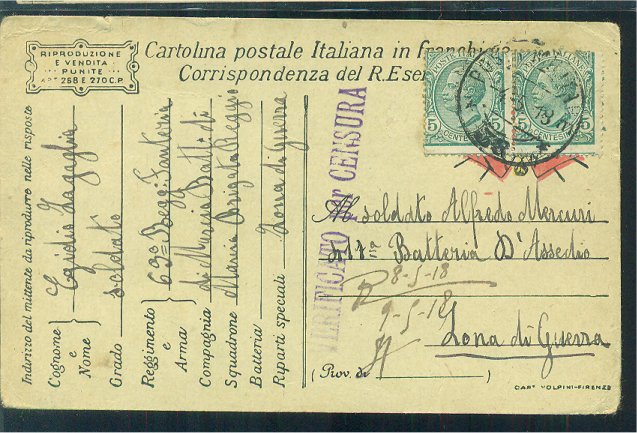 RIPRODUZIONE
E VENDITA
PUNITE
ART 268 E 270 C.P.
Cartolina postale Italiana in franchigia
Corrispondenza del R. Eser
POSTE ITALIANE
5 CENTESIMI 5
5 CENTESIMI 5
18
VERIFICATO per CENSURA
Indirizzo del mittente da riprodurre nelle risposte
Cognome e Nome Egidio
Grado soldato
Reggimento e Arma 63° Regg. Fanteria
Compagnia
Squadrone
Batteria
Riparti speciali Zona di guerra
Al soldato Alfredo Mercuri
Batteria D'Assedio
8-5-18
9-5-18
Zona di Guerra
(Prov. di
CART VOLPINI-FIRENZE